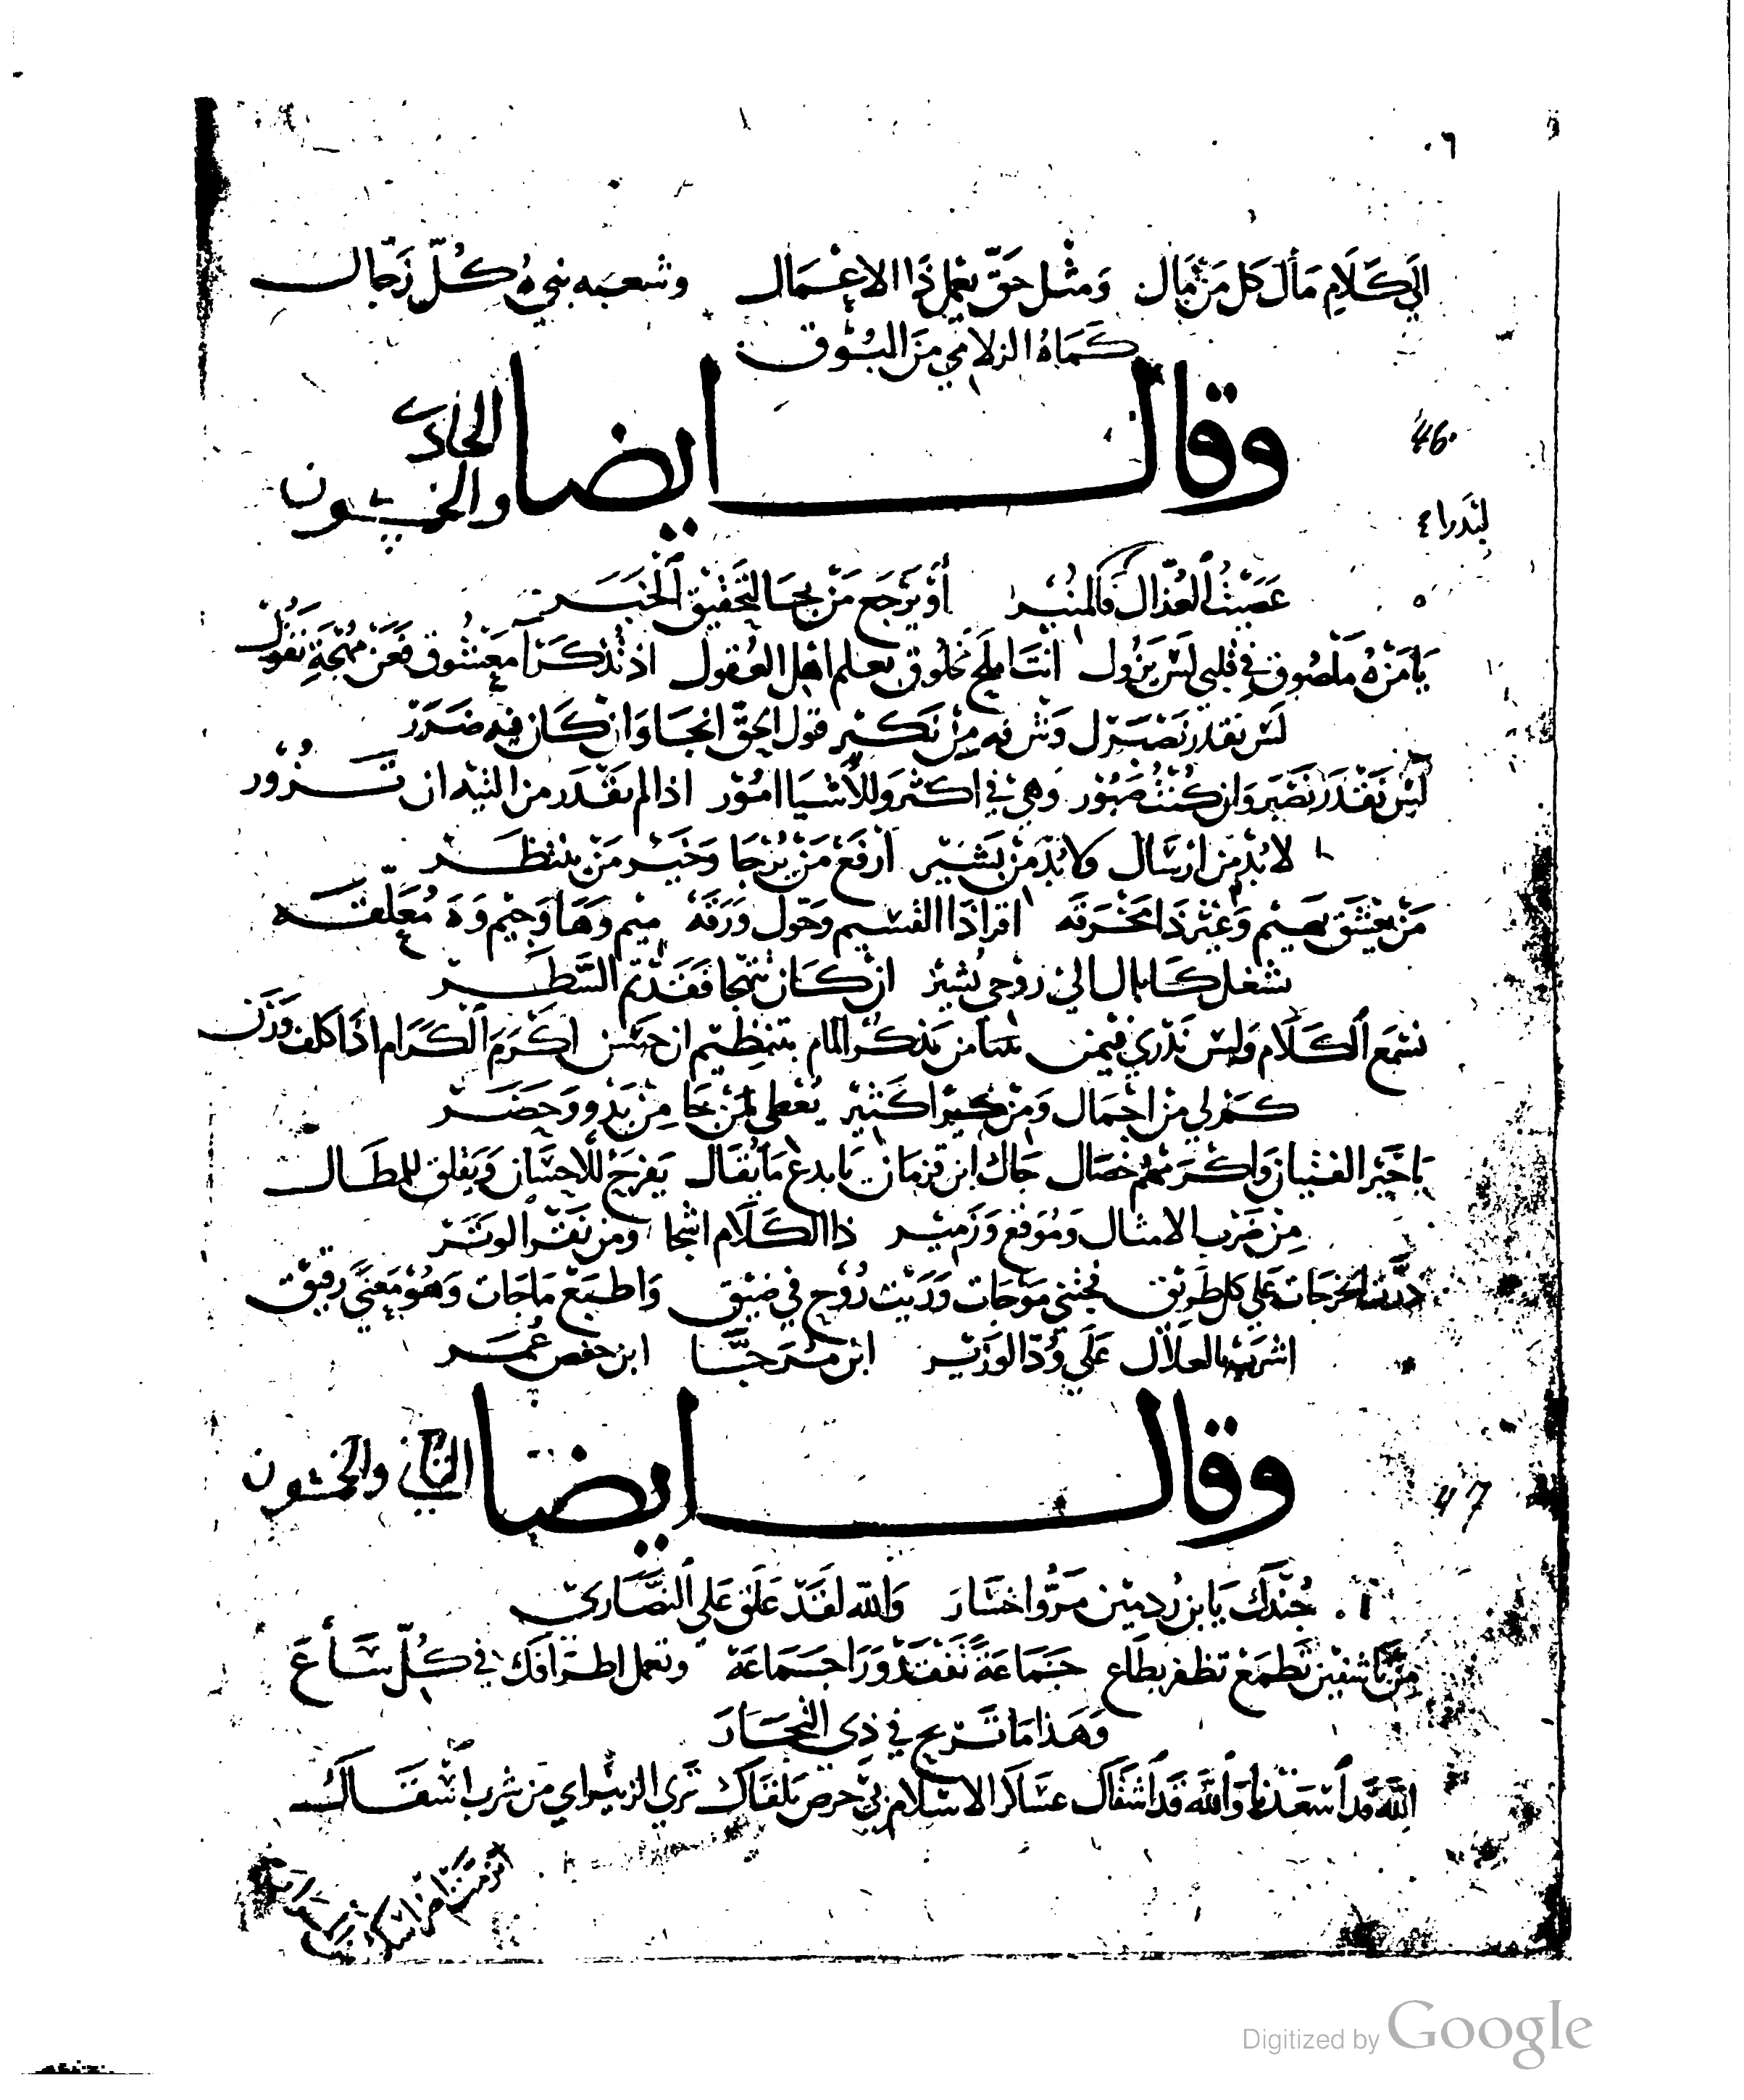 ٦٠
الَي كَلَامِ مَالَ كَل مَن مَال وَمثل حَقّ يعمل ذَا الاعْمَال وشعبه بنيهُ كُلّ زَجّال
كَمَاهُ الزلامي مَن البُوق
وقال ايضا الحادى
46.
والخمسون
عَصَيتُ العُذّال فالمنير أوْ يَرْجَع مَن يجا لتَحقيق الخَبَر
يَا مَن هُ مَلصُوق في قلبي لَسْ يَزُول انتَ املح مخلوق بعلم اهل العقول اذ نُذكر نا مَعشُوق فعَن مُهْجَةِ نقول
لَس نقدر نصبر ل وَش فيه من نكير قول الحقّ انجا وَان كَان فيه ضَرَر
لَيس نَقْدَر نَصْبَر وَان كُنْتُ صَبُور وَهي في اكثر وللأشيا امُوْر اذا لم نقدر من التيه ان تَزُور
لابُدّ من ارسَال ولابُدّ مَن بَشير ارفع مَن يُرْجَا وَخَير مَن ينتظر
مَن يعْشَق بهيم وَغيْر ذَا مخرقَه اقرا ذا القسيم وَحَوّل وَرَقَهْ ميم وَهَا وَجيم وَهَ مُعَلّقه
شغل كَابال الي رُوحي يُشير ان كَان تهجا فَقَدْ تم السَّطَر
نسْمَع الكَلَام وَلس نَدْري فيمن من مَدكر المام بتنظيم ان حَسن اكْرَم الكرَام اذا كلف وَزَن
كم لي من اجمال وَمن خير اكثير يُعْطى لمن جَا مِن بَدو وَحَضَر
يَا خَيْر الفتيان وَاكرمهُم خصَال جَاك ابن قزمان يَا بدع مَا يُقَال يفرح للاحسَان وَيقلق للمطَال
مِن ضَرب الامثال وَمُوقع وَزمير ذا الكَلَام اشجا ومن نقر الوتر
دَرَت الخرجات عَلى كل طَريق فجتني مَوْجَات وَرَيت رُوْح في ضيق وَاطبع مَا جَات وَهُوْ مَعنَى رقيق
اشرب بالعلال عَلَى وُدّ الوَزير ابن مَرحبَّا ابن حفص عُمَر
وقال ايضا الثاني والخمسون
47
جُنْدَكْ يَابن رُدمِيْن مَرُّوا خسَارَ وَاللّه لقَدْ عَلَق عَلى النصَّارىْ
مِن تَاشفين تَطْمَع تظفر بطَاع جَمَاعَة نَفَقَدْ وَرَا جَمَاعَة وتعمل اطرَافَك في كُلّ سَاعَ
وَهَذا مَا تَريح في ذِى التجَارَ
اللَّه قد اسْعَدنا وَاللَّه قَد اشقَاك عسَاكر الاسْلام بي حرص تلقاك تَرى الزبير اي مَن شرب اشقَاك
Digitized by Google